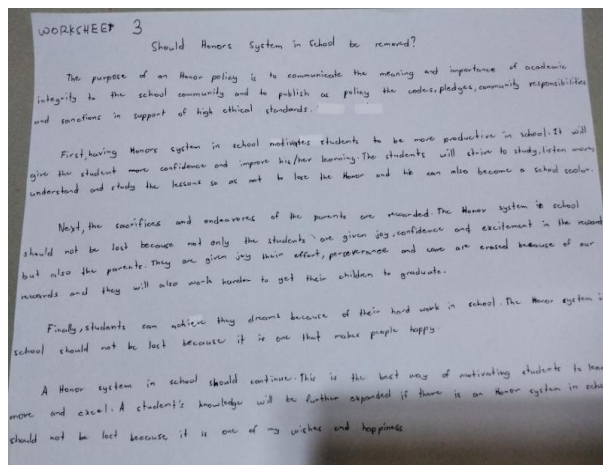 WORKSHEET 3
Should Honors System in School be removed?
The purpose of an Honor policy is to communicate the meaning and importance of academic
integrity to the school community and to publish as policy the codes, pledges, community responsibilities
and sanctions in support of high ethical standards.
First, having Honors system in school motivates students to be more productive in school. It will
give the student more confidence and improve his/her learning. The students will strive to study, listen more,
understand and study the lessons so as not to lose the Honor and he can also become a school scolar.
Next, the sacrifices and endeavores of the parents are rewarded. The Honor system in school
should not be lost because not only the students are given joy, confidence and excitement in the reward
but also the parents. They are given joy their effort, perseverance and care are erased because of our
rewards and they will also work harder to get their children to graduate.
Finally, students can achieve they dreams because of their hard work in school. The Honor system in
school should not be lost because it is one that makes people happy.
A Honor system in school should continue. This is the best way of motivating students to learn
more and excel. A student's knowledge will be further expanded if there is an Honor system in school
should not be lost because it is one of my wishes and happiness